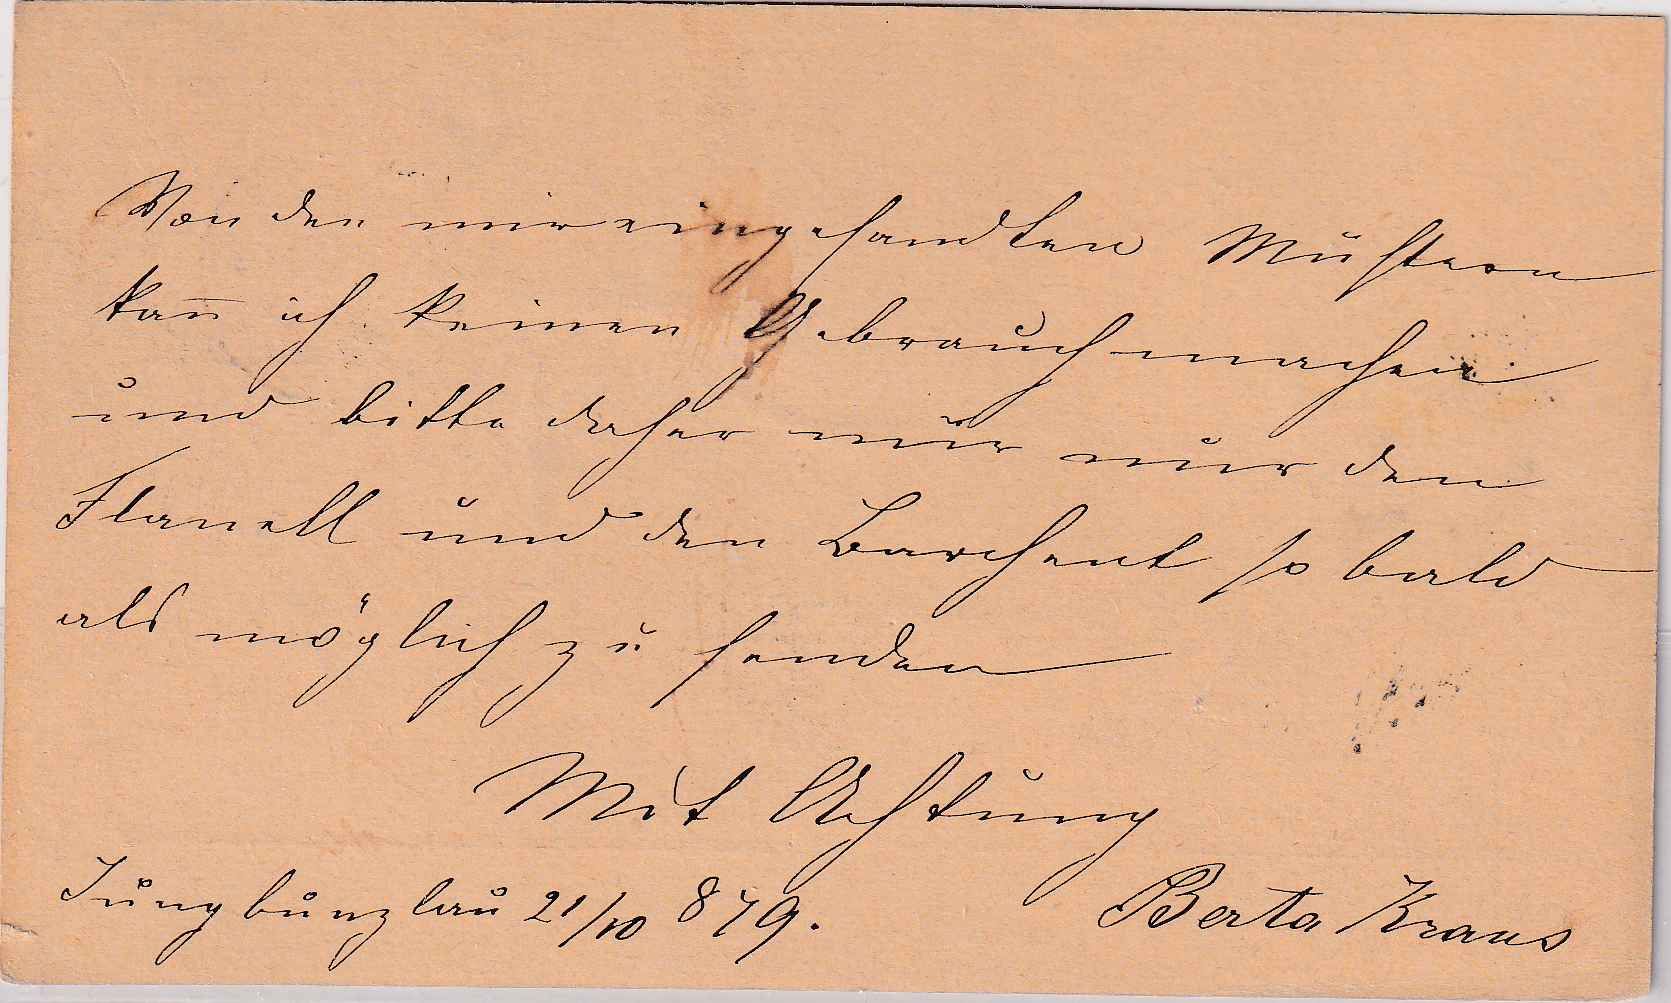 Von den mir eingesandten Mustern
kan̅ ich keinen Gebrauch machen
und bitte daher mir nur den
Flanell und den Barchent so bald
als möglich zu senden
Mit Achtung
Jungbunzlau 21/10 879.
Berta Kraus